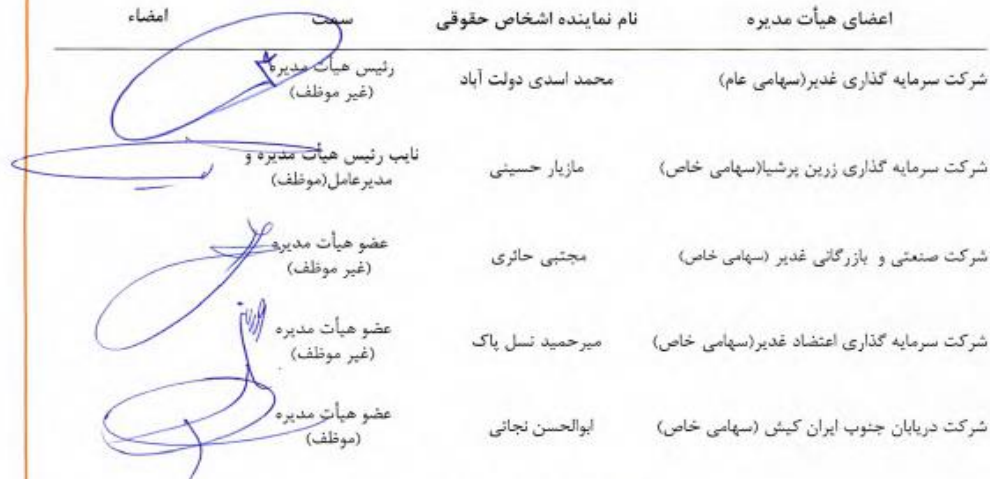 اعضای هیأت مدیره نام نماینده اشخاص حقوقی سمت امضاء
شرکت سرمایه گذاری غدیر(سهامی عام) محمد اسدی دولت آباد رئیس هیأت مدیره
(غیر موظف)
شرکت سرمایه گذاری زرین پرشیا(سهامی خاص) مازیار حسینی نایب رئیس هیأت مدیره و
مدیرعامل(موظف)
شرکت صنعتی و بازرگانی غدیر (سهامی خاص) مجتبی حائری عضو هیأت مدیره
(غیر موظف)
شرکت سرمایه گذاری اعتضاد غدیر(سهامی خاص) میرحمید نسل پاک عضو هیأت مدیره
(غیر موظف)
شرکت دریابان جنوب ایران کیش (سهامی خاص) ابوالحسن نجاتی عضو هیأت مدیره
(موظف)